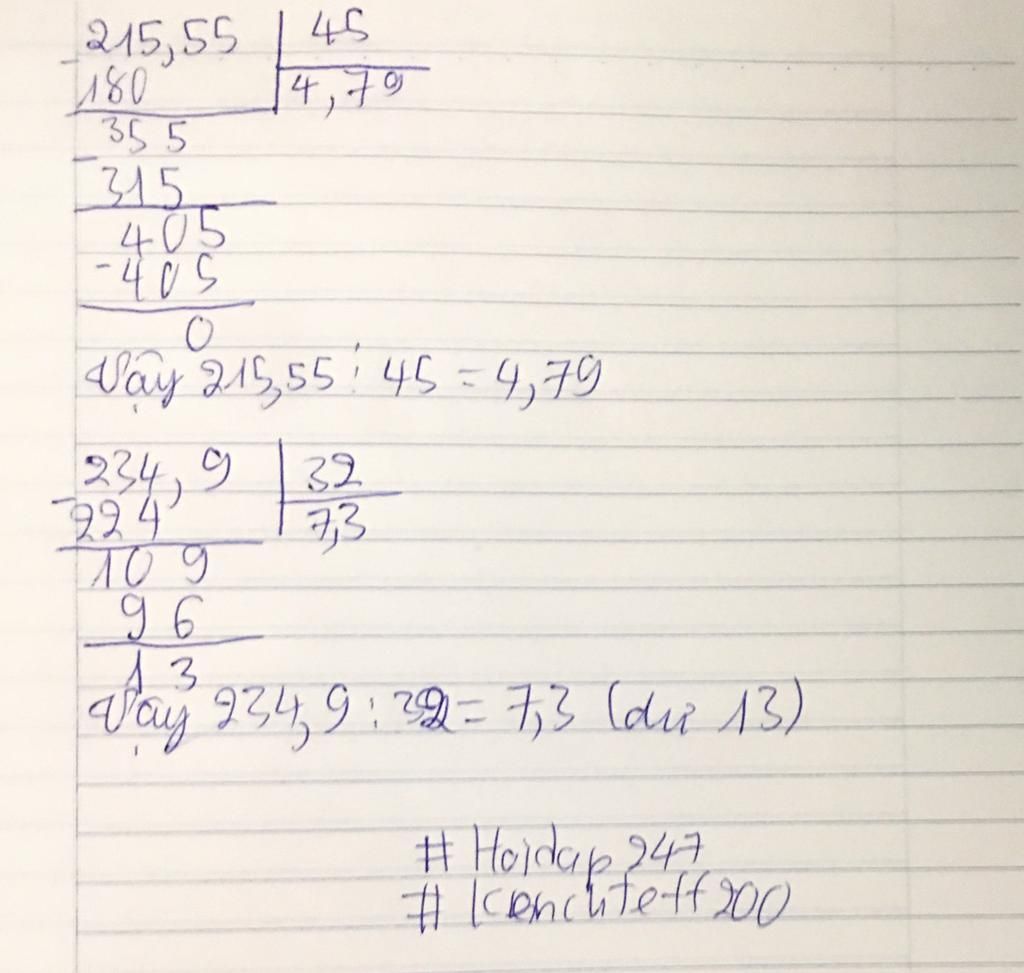 215,55 45
180 4,79
355
315
405
-405
0
Vậy 215,55 : 45 = 4,79
234,9 32
-224 7,3
109
96
13
Vậy 234,9 : 32 = 7,3 (dư 13)
# Hoidap247